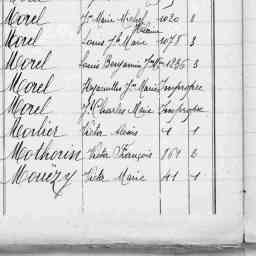 Morel Jn Marie Michel 1020 2
Morel Louis Jh Marie 1078 3
Morel Louis Benjamin Jn M. 1236 3
Morel Hyacinthe Jn Marie Impropre
Morel J. Charles Marie Impropre
Morlier Victor Alexis 4 1
Mothorin Victor François 864 2
Mouëzy Victor Marie 41 1